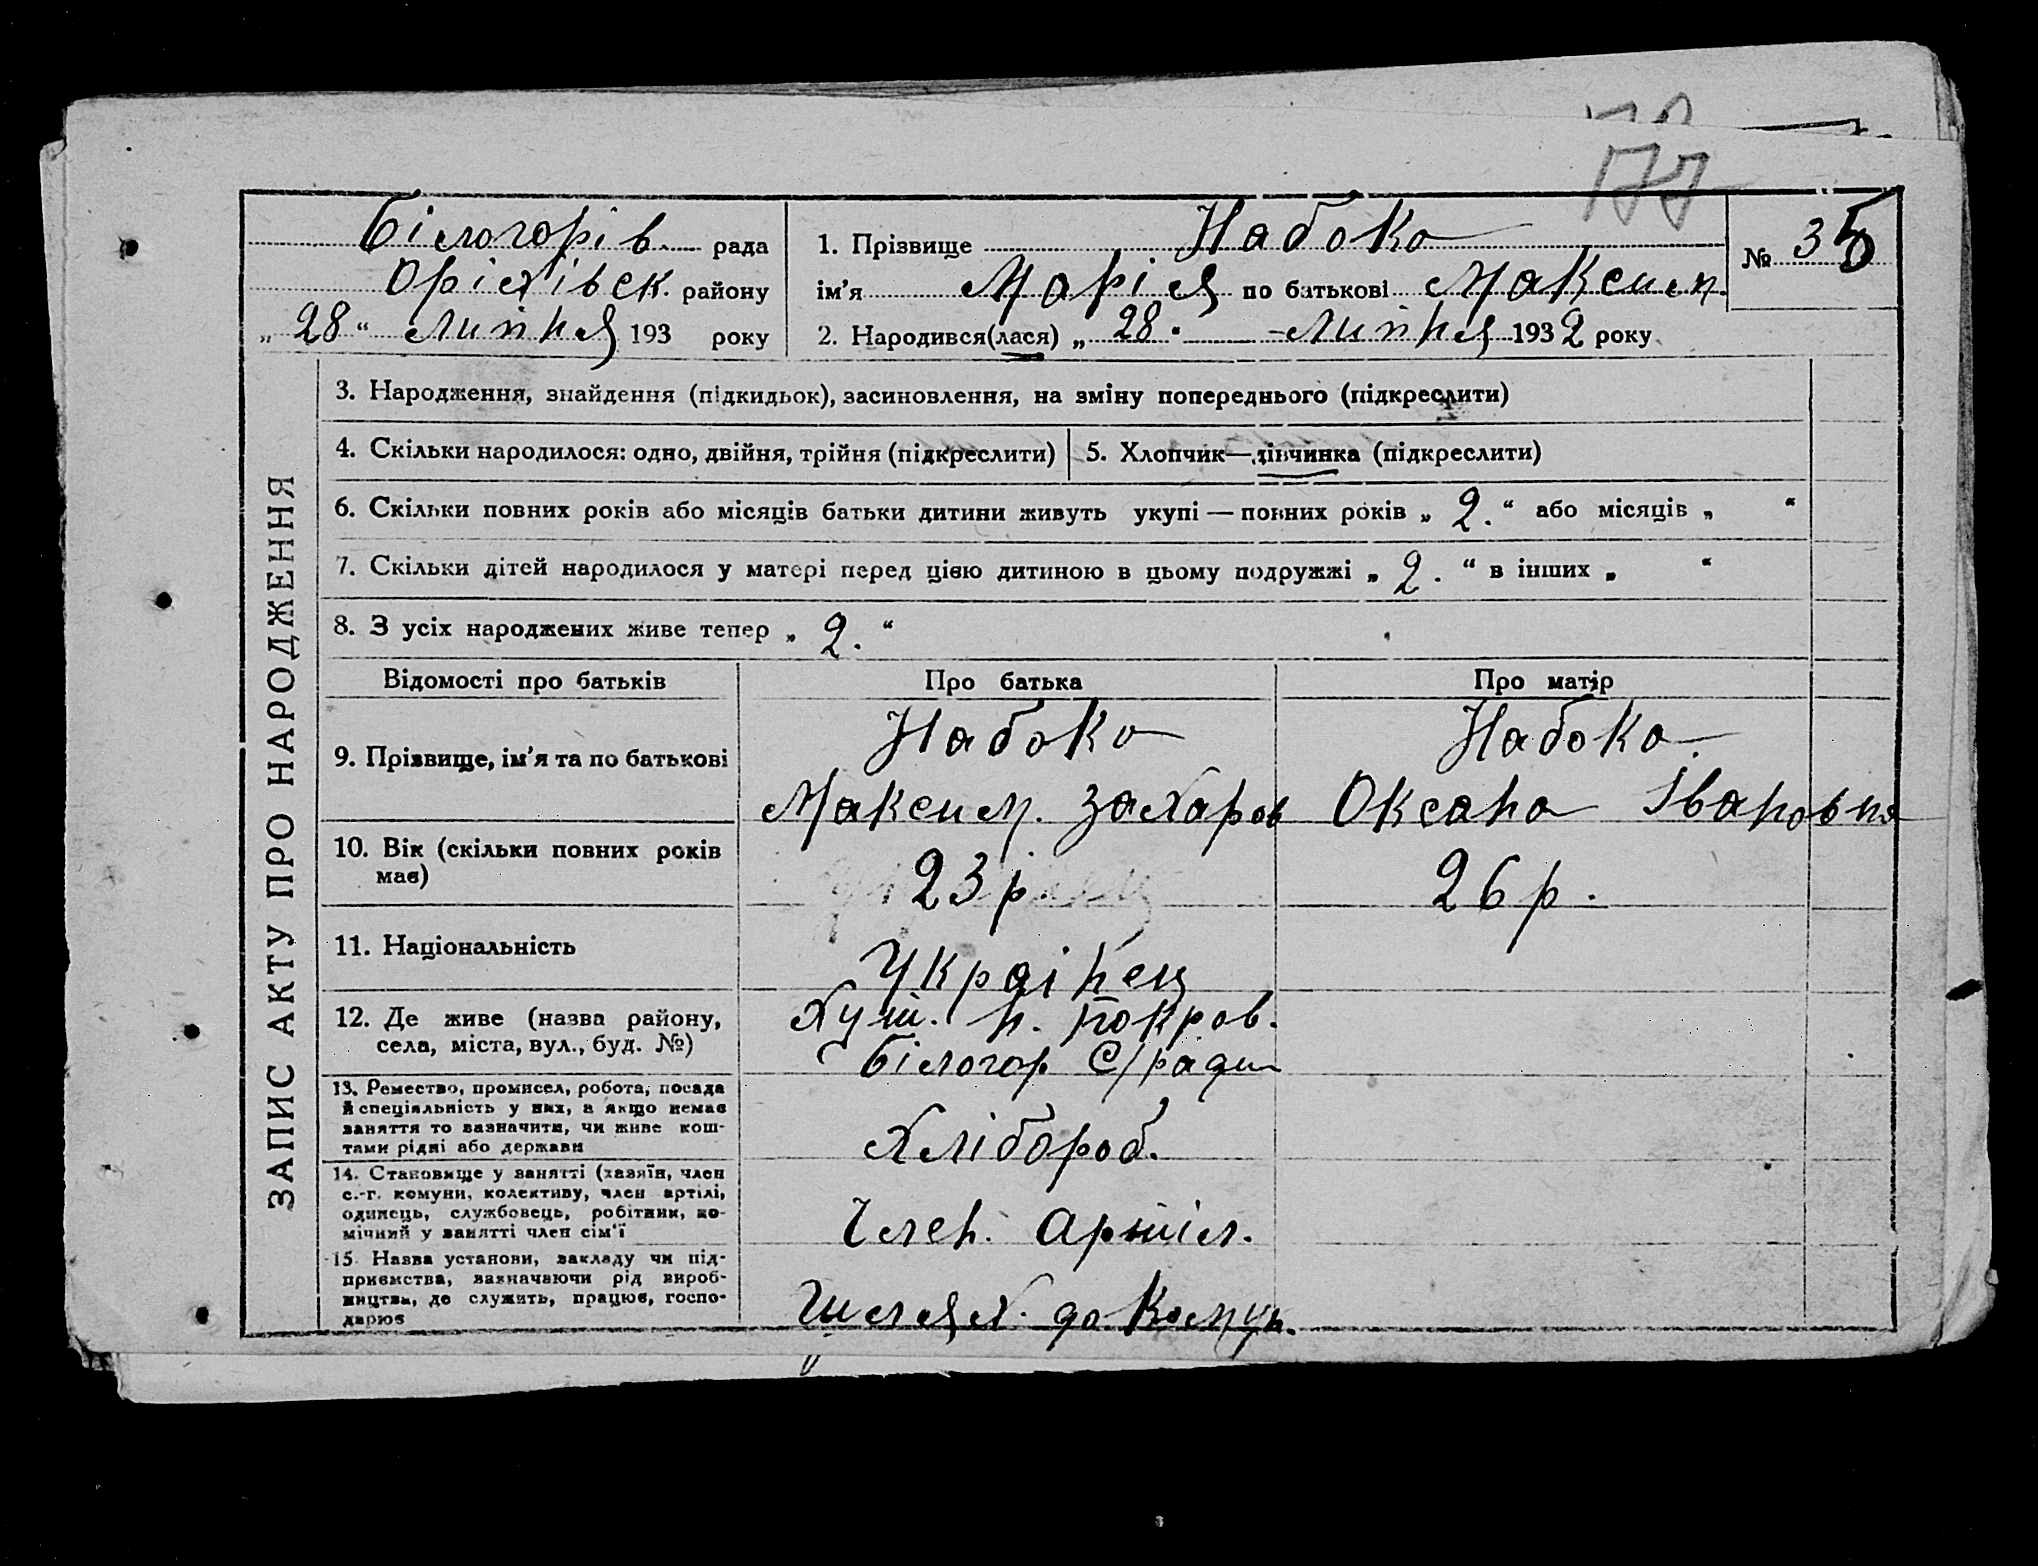 177
Білогорів. рада
Оріхівск. району
„ 28 “ Липня 193 року
1. Прізвище Набока
ім’я Марія по батькові Максим.
2. Народився(лася) „ 28. Липня 1932 року
№ 35
ЗАПИС АКТУ ПРО НАРОДЖЕННЯ
3. Народження, знайдення (підкидьок), засиновлення, на зміну попереднього (підкреслити)
4. Скільки народилося: одно, двійня, трійня (підкреслити)
5. Хлопчик—дівчинка (підкреслити)
6. Скільки повних років або місяців батьки дитини живуть укупі — повних років „ 2. “ або місяців „ “
7. Скільки дітей народилося у матері перед цією дитиною в цьому подружжі „ 2. “ в інших „ “
8. З усіх народжених живе тепер „ 2. “
Відомості про батьків
Про батька
Про матір
9. Прізвище, ім’я та по батькові
Набока
Максим. Захаров
Набока.
Оксана Івановна
10. Вік (скільки повних років
має)
23 р.
26 р.
11. Національність
Украінец
12. Де живе (назва району,
села, міста, вул., буд. №)
Хут. Н. Покров.
Білогор С/ради
13. Ремество, промисел, робота, посада
й спеціяльність у них, а якщо немає
заняття то зазначити, чи живе кош-
тами рідні або держави
Хлібороб.
14. Становище у занятті (хазяїн, член
с.-г. комуни, колективу, член артілі,
одинець, службовець, робітник, по-
мічний у занятті член сім’ї
Член. артіл.
15. Назва установи, закладу чи під-
приємства, зазначаючи рід вироб-
ництва, де служить, працює, госпо-
дарює
Шлях. до Комун.